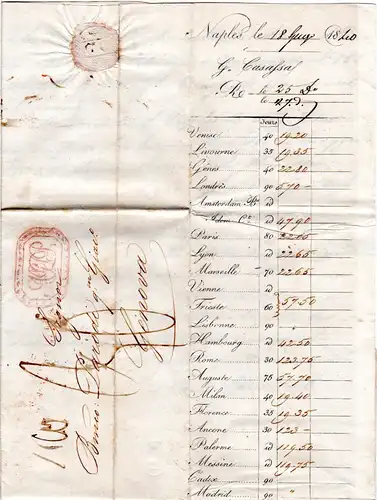 Naples le 18 Gug 1840
G. Casassa
Ro le 25 do
le 27 d.
Jours
Venise 40 19.20
Livourne 35 19.35
Gênes 40 22.80
Londres 90 570
Amsterdam id
Idem id 47.90
Paris 80 22.65
Lyon id 22.65
Marseille 70 22.65
Vienne id
Trieste 60 57.50
Lisbonne 90 "
Hambourg id 42.50
Rome 30 123.75
Auguste 75 57.70
Milan 40 19.40
Florence 35 19.35
Ancone 30 123
Palerme id 119.50
Messine id 119.75
Cadix 90
Madrid 90
Signor
Genova